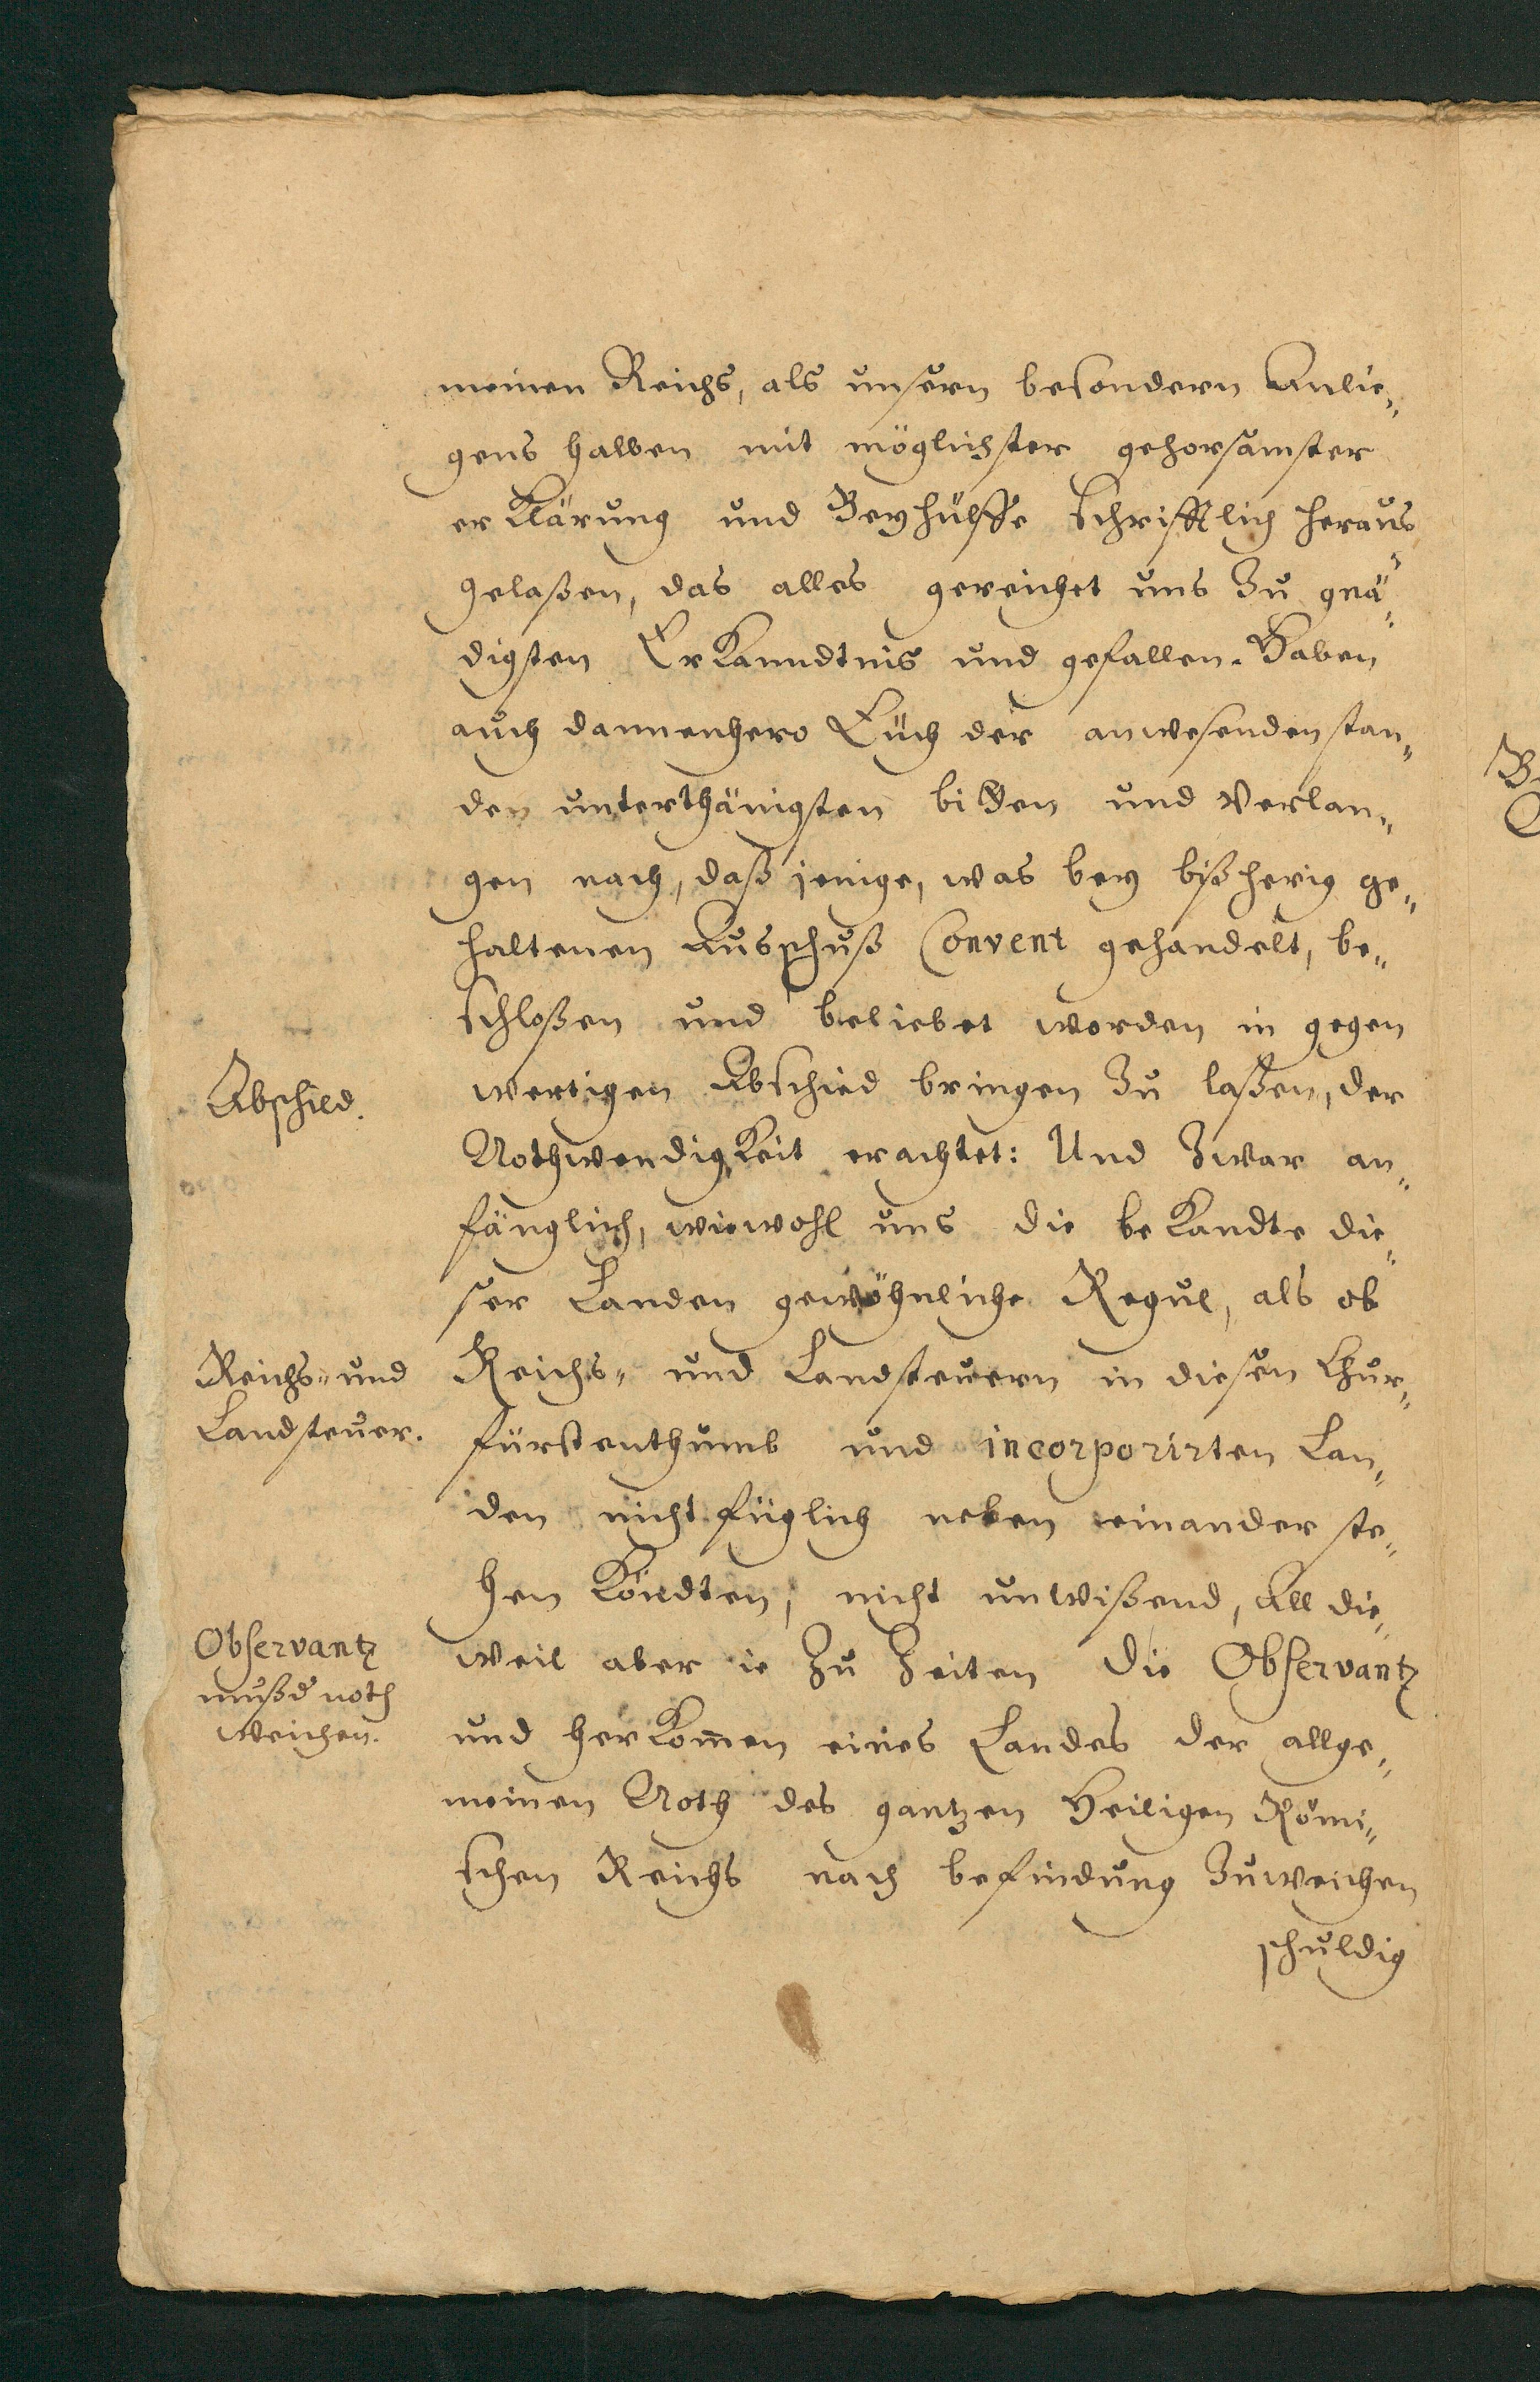 meinen Reichs, als unsern besondern Anlie„
gens halben mit möglichster gehorsamster
erklärung und Beyhülffe schrifftlich heraus
gelaßen, das alles gereichet uns zu gnä„
digsten Erkanndtnis und gefallen. Haben
auch dannenhero Euch der anwesenden stan„
den unterthänigsten bitten und verlan„
gen nach, daß jenige, was bey bißherig ge„
haltenen Ausschuß Convent gehandelt, be„
schloßen und beliebet worden in gegen
Abschied.
wertigen Abschied bringen zu laßen, der
Nothwendigkeit erachtet: Und zwar an„
fänglich, wiewohl uns die bekandte die„
ser Landen gewöhnliche Regul, als ob
Reichs„ und
Landsteuer.
Reichs„ und Landsteuern in diesen Chur„
fürstenthumb und incorporirten Lan„
den nicht füglich neben einander ste„
hen köndten, nicht unwißend, All die„
Observantz
muß d noth
weichen.
weil aber ie zu Zeiten die Observantz
und herkom̃en eines Landes der allge„
meinen Noth des gantzen Heiligen Römi„
schen Reichs nach befindung zuweichen
schuldig